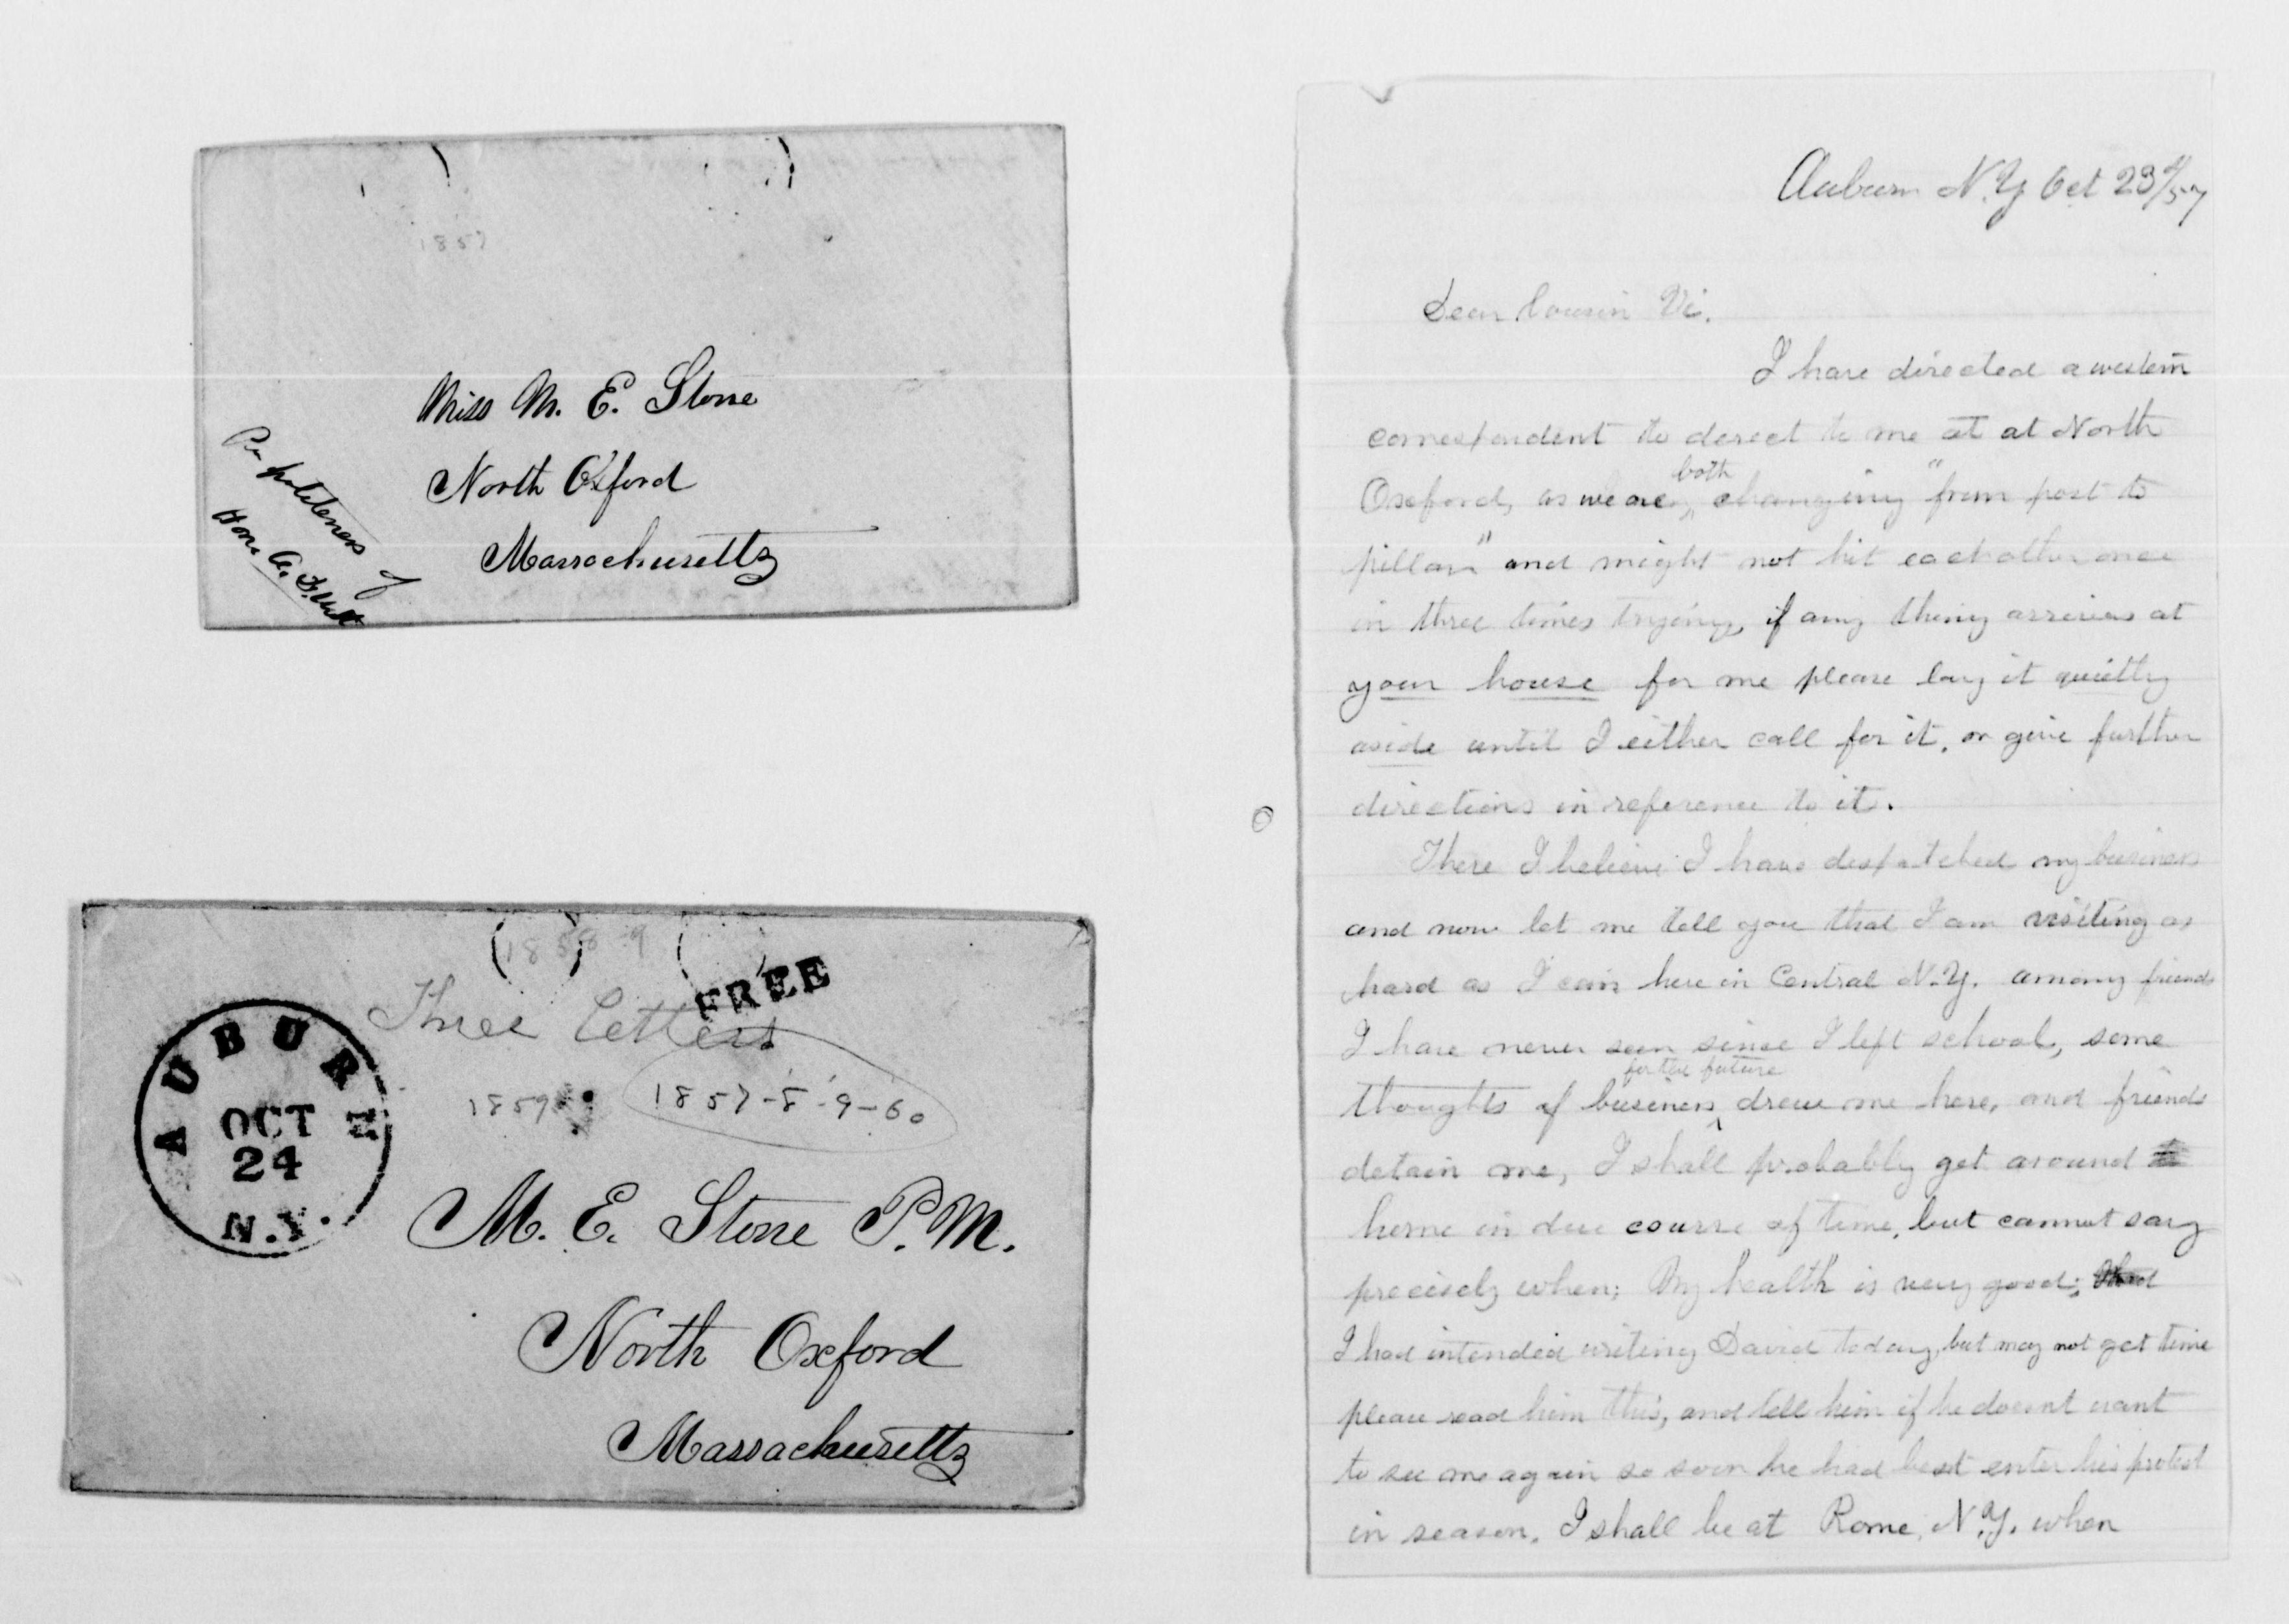 1857
Miss M. E. Stone
North Oxford
Massachusetts
Per politeness of
Hon. A.
1858 9
FREE
Three letters
1859 1857-8-9-60
AUBURN
OCT
24
N.Y.
M. E. Stone P.M.
North Oxford
Massachusetts
Auburn N.Y Oct 23d/57
Dear Cousin Ve.
I have directed a western
correspondent to derect to me at at North
Oxeford, as we are both changing "from post to
pillar" and might not hit each other once
in three times trying, if any thing arrives at
your house for me please lay it quietly
aside until I either call for it, or give further
directions in reference to it.
There I believe I have despatched my business
and now let me tell you that I am visiting as
hard as I can here in Central N.Y. among friends
I have never seen since I left school, some
thoughts of business for the future drew me here, and friends
detain me, I shall probably get around
home in due course of time, but cannot say
precisely when; My health is very good;
I had intended writing David today, but may not get time
please read him this, and tell him if he doesnt want
to see me again so soon he had best enter his protest
in season. I shall be at Rome, N.Y. when